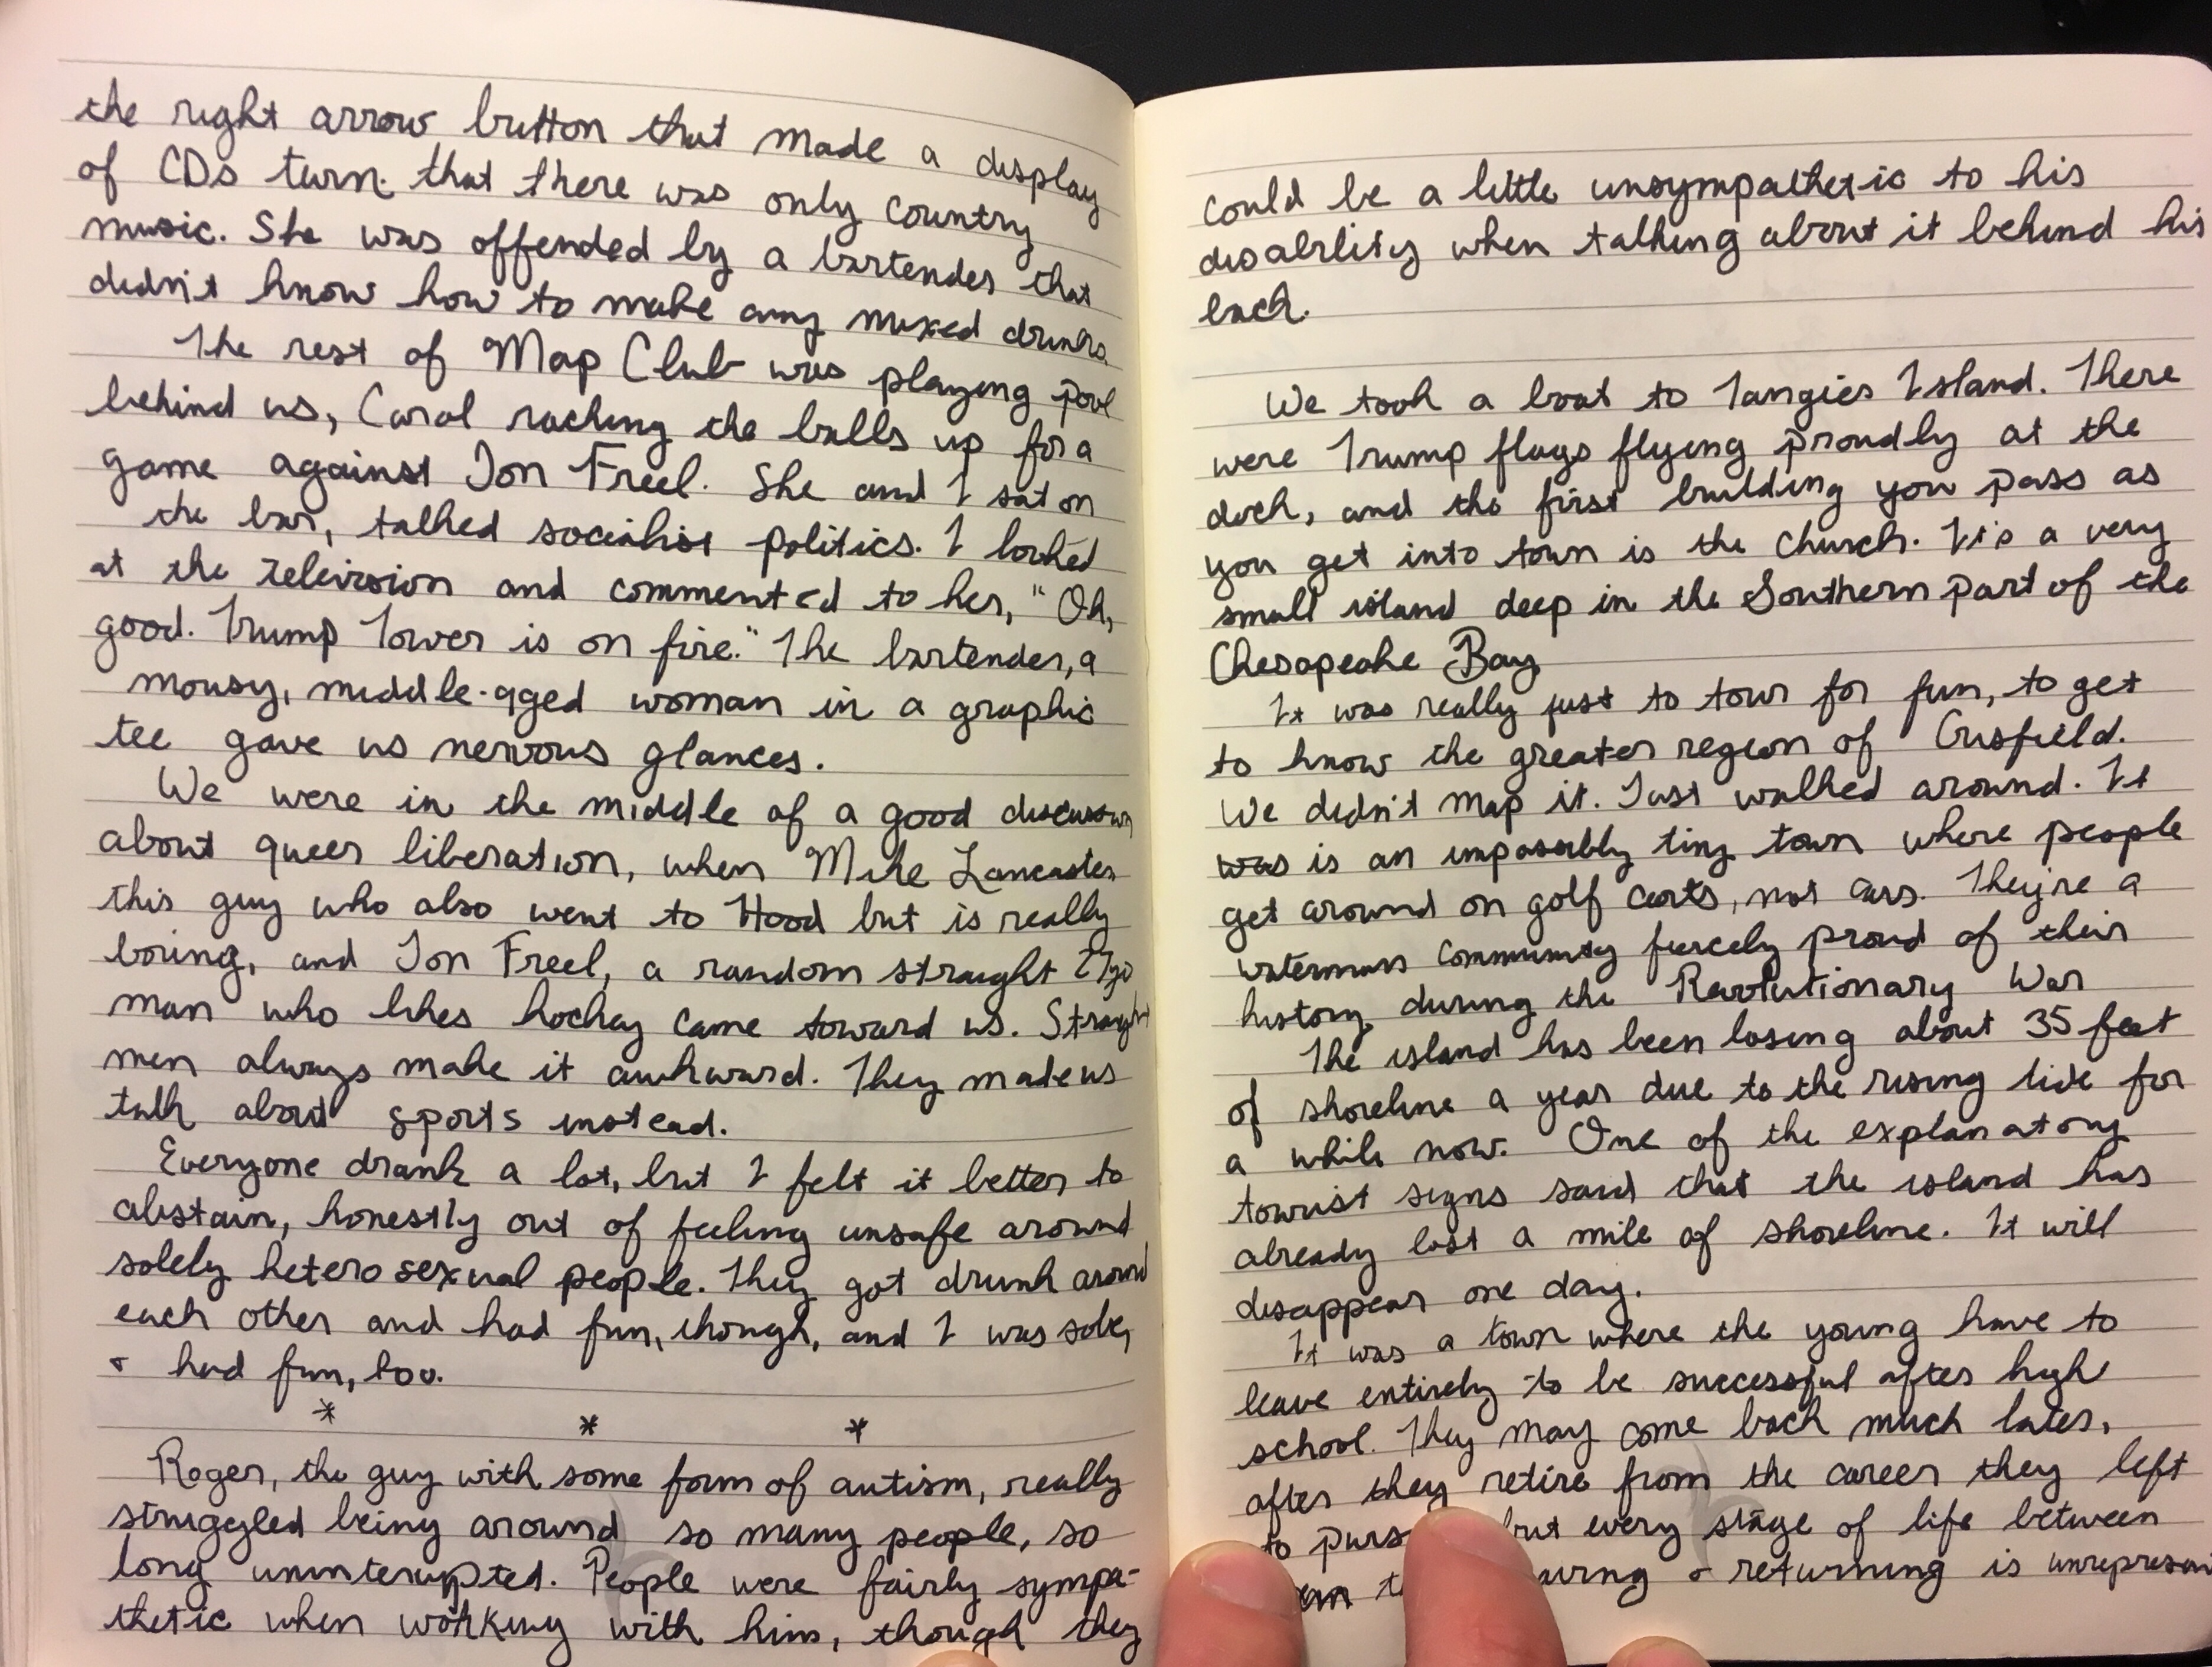 the right arrow button that made a display
of CDs turn that there was only country
music. She was offended by a bartender that
didn't know how to make any mixed drinks.
The rest of Map Club was playing pool
behind us, Carol racking the balls up for a
game against Jon Freel. She and I sat on
the bar, talked socialist politics. I looked
at the television and commented to her, "Oh,
good. Trump Tower is on fire." The bartender, a
mousy, middle-aged woman in a graphic
tee gave us nervous glances.
We were in the middle of a good discussion
about queer liberation, when Mike Lancaster
this guy who also went to Hood but is really
boring, and Jon Freel, a random straight
man who likes hockey came toward us. Straight
men always make it awkward. They made us
talk about sports instead.
Everyone drank a lot, but I felt it better to
abstain, honestly out of feeling unsafe around
solely heterosexual people. They got drunk around
each other and had fun, though, and I was sober,
+ had fun, too.
* * *
Roger, the guy with some form of autism, really
struggled being around so many people, so
long uninterupted. People were fairly sympa-
thetic when working with him, though they
could be a little unsympathetic to his
disability when talking about it behind his
back.
We took a boat to Tangier Island. There
were Trump flags flying proudly at the
dock, and the first building you pass as
you get into town is the church. It's a very
small island deep in the Southern part of the
Chesapeake Bay
It was really just to tour for fun, to get
to know the greater region of Crisfield.
We didn't map it. Just walked around. It
was is an impossibly tiny town where people
get around on golf carts, not cars. They're a
watermans community fiercely proud of their
history during the Revolutionary War
The island has been losing about 35 feet
of shoreline a year due to the rising tide for
a while now. One of the explanatory
tourist signs said that the island has
already lost a mile of shoreline. It will
disappear one day.
It was a town where the young have to
leave entirely to be successful after high
school. They may come back much later,
after they retire from the career they left
to but every stage of life between
+ returning is